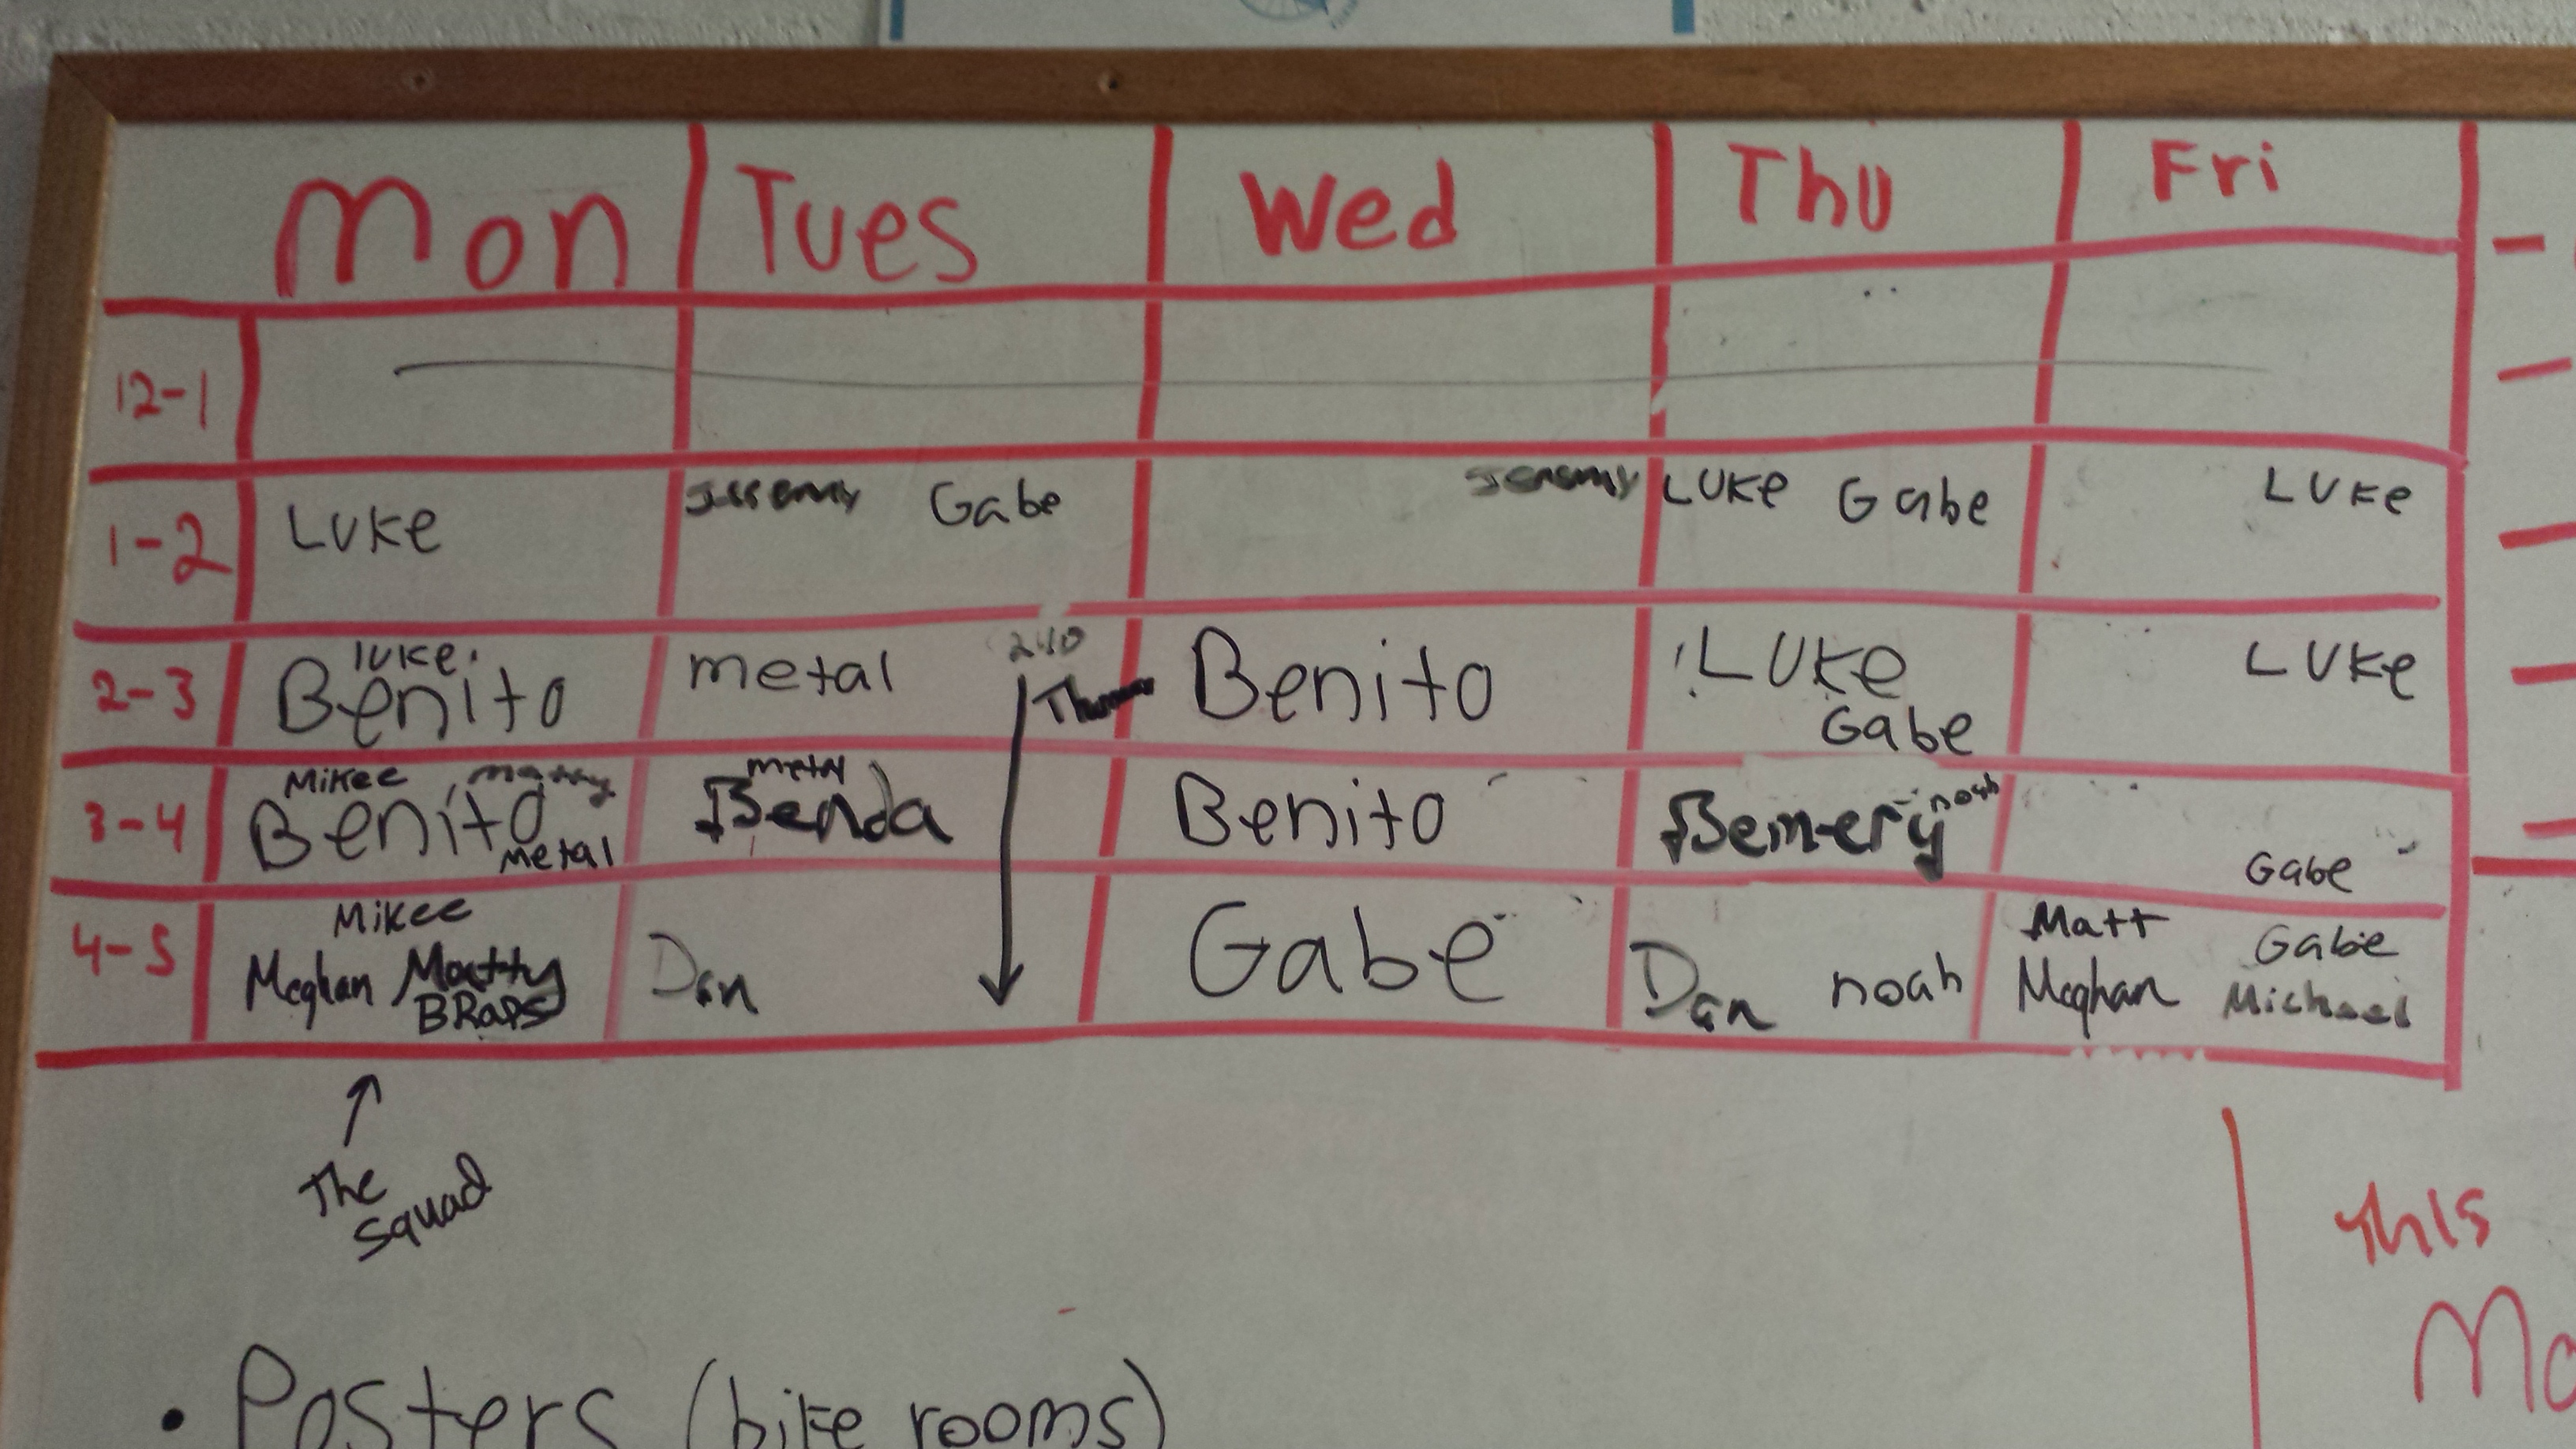 Mon Tues Wed Thu Fri
12-1
1-2 LUKe Jeremy Gabe Jeremy LUKe Gabe LUKe
2-3 luke. Benito metal 2:10 Benito LUKe Gabe LUKe
3-4 Mikee matty Benito metal metal Benda Benito Bemery noah Gabe
4-5 Mikee Meghan Matty BRaps Dan Gabe Dan noah Matt Meghan Gabe Michael
The
squad
This
Mo
• Posters (bike rooms)